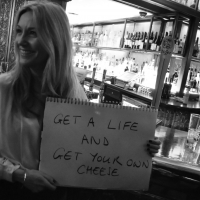 GET A LIFE
AND
GET YOUR OWN
CHEESE